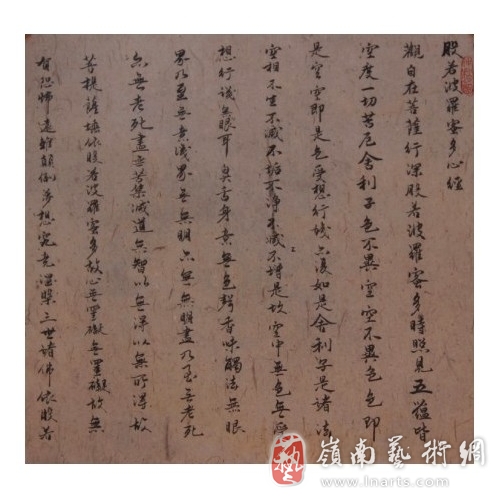 般若波羅蜜多心經
觀自在菩薩行深般若波羅蜜多時照見五蘊皆
空度一切苦厄舍利子色不異空空不異色色即
是空空即是色受想行識亦復如是舍利子是諸法
空相不生不滅不垢不淨不減不增是故空中無色無受
想行識無眼耳鼻舌身意無色聲香味觸法無眼
界乃至無意識界無無明亦無無明盡乃至無老死
亦無老死盡無苦集滅道無智亦無得以無所得故
菩提薩埵依般若波羅蜜多故心無罣礙無罣礙故無
有恐怖遠離顛倒夢想究竟涅槃三世諸佛依般若
藝
嶺南藝術網
www.lnarts.com